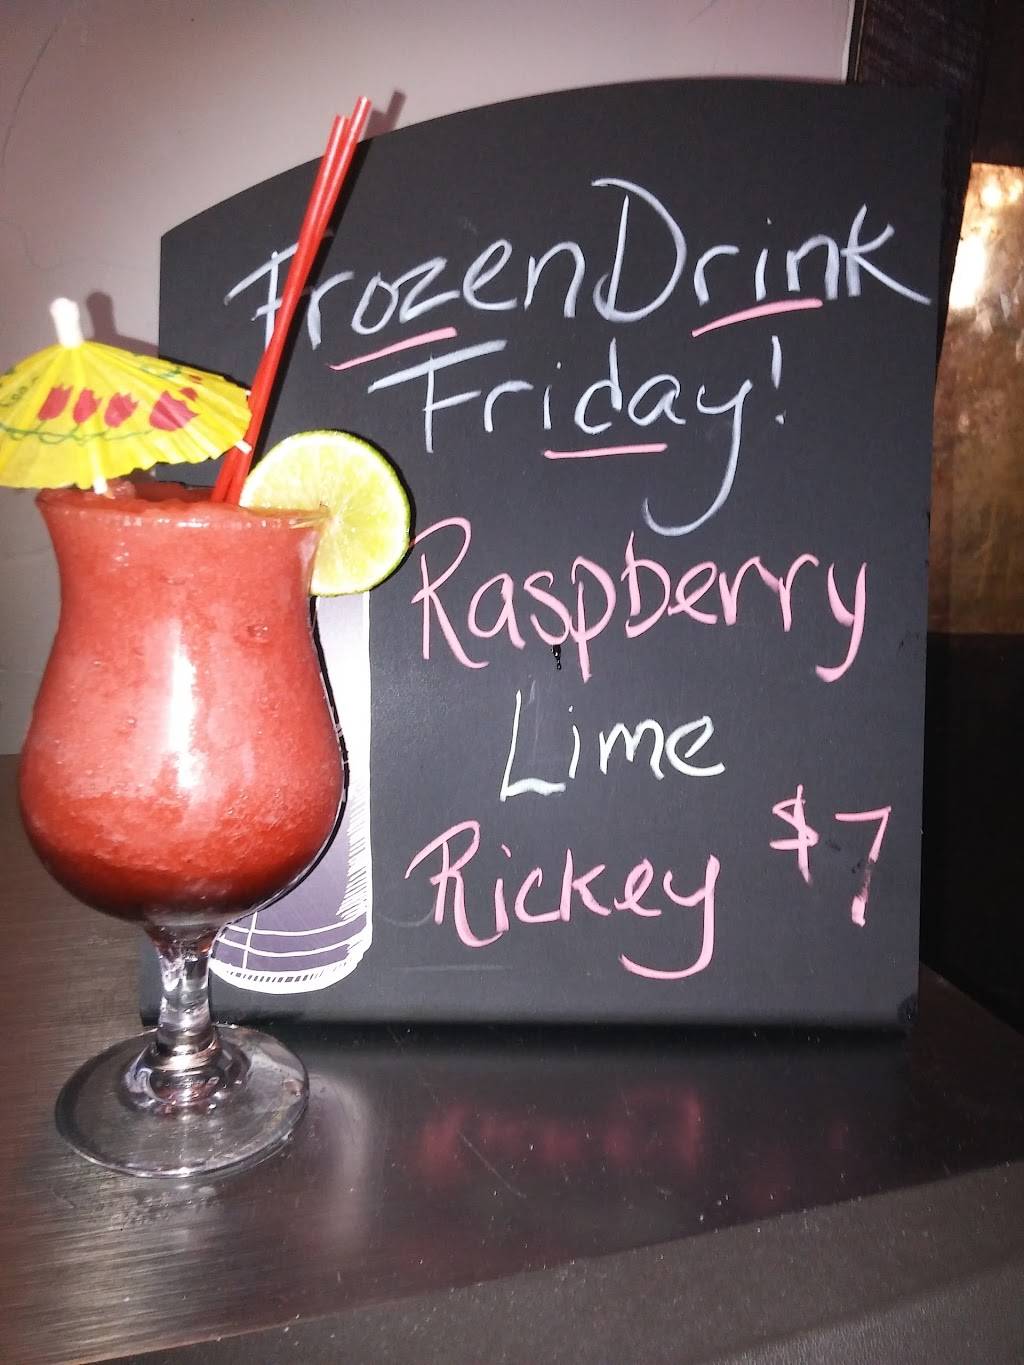 Frozen Drink
Friday!
Raspberry
Lime
Rickey $7